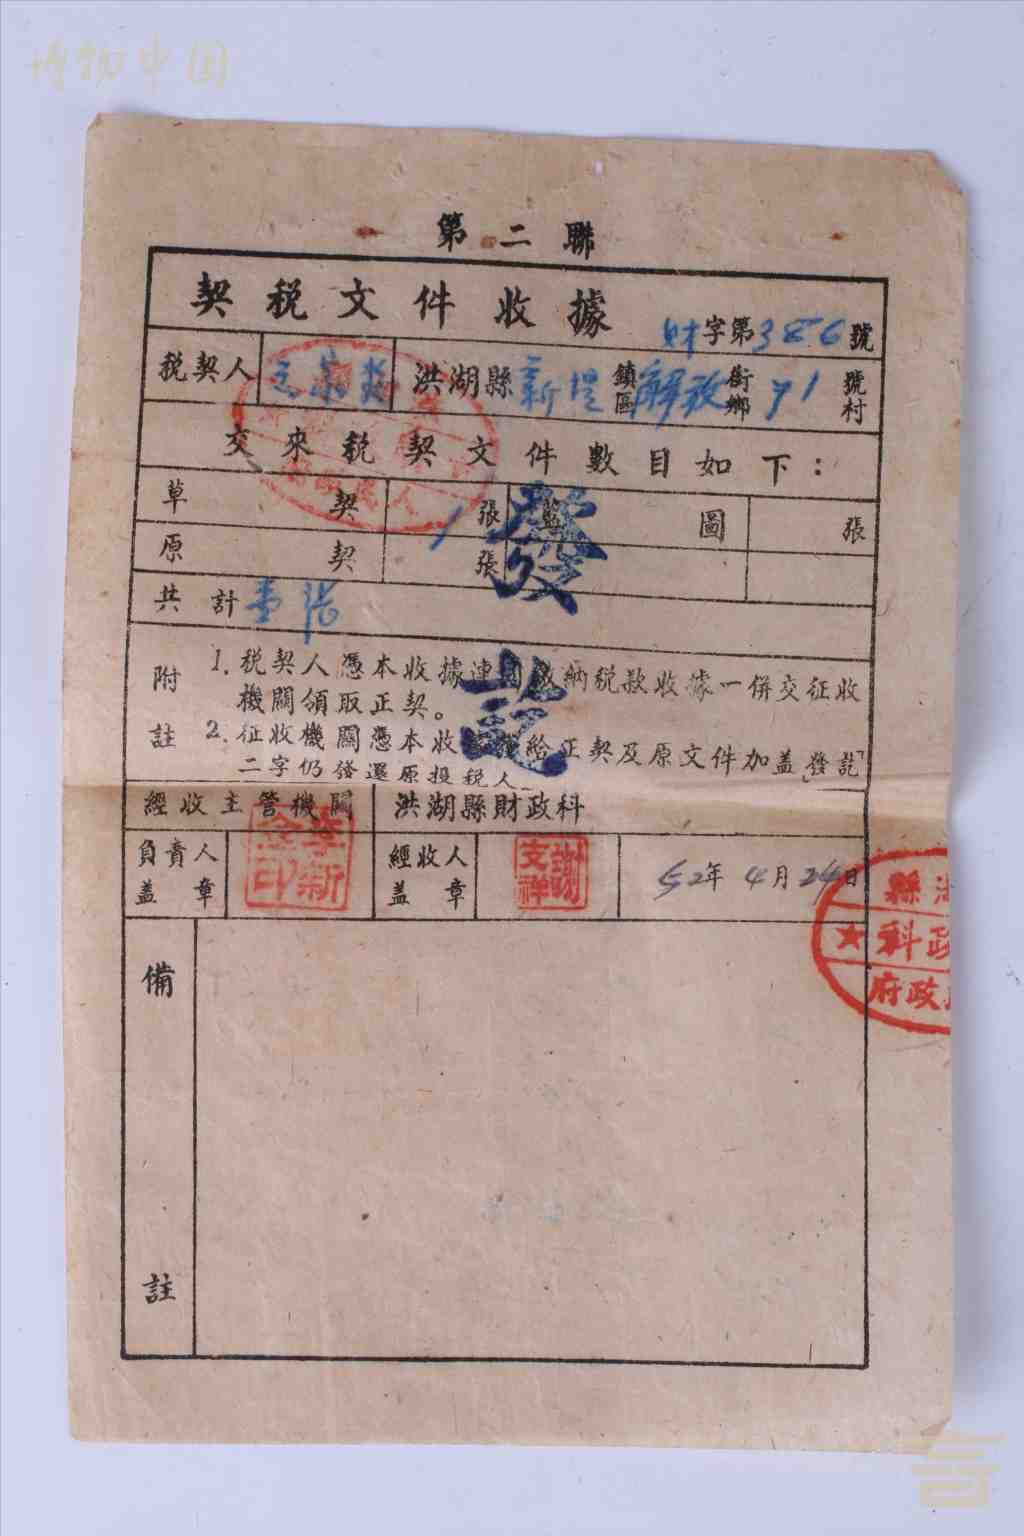 博物中国
第二聯
契税文件收據
财字第386號
税契人 洪湖縣新堤鎮區解放街鄉71號村
交來税契文件數目如下：
草契 1張 藍圖 張
原契 張
共計壹張
附註
1. 税契人憑本收據連同繳納税款收據一併交征收
機關領取正契。
2. 征收機關憑本收 給正契及原文件加蓋「發訖」
二字仍發還原投税人
發訖
經收主管機關 洪湖縣財政科
負責人蓋章 李新 印 經收人蓋章 謝文祥 52年4月24日
縣湖
科政
府政
備註